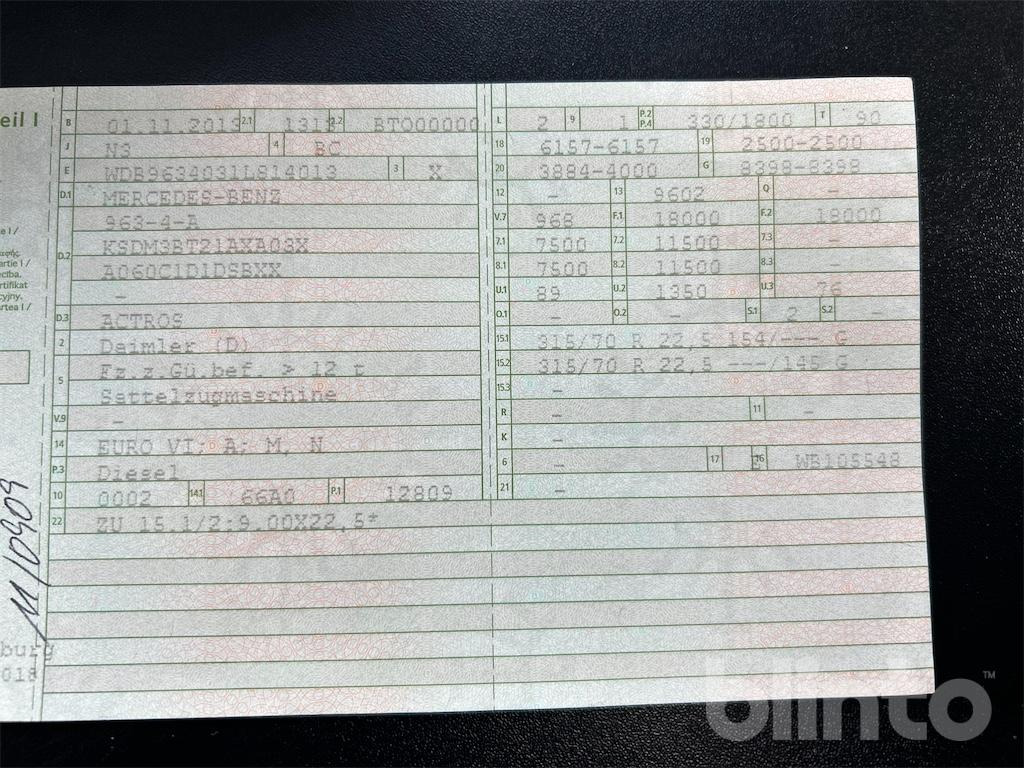 eil I
B 01.11.2013 2.1 1313 2.2 BT000000
J N3 4 BC
E WDB9634031L814013 3 X
D.1 MERCEDES-BENZ
963-4-A
D.2 KSDM3BT21AXA03X
A060C1D1DSBXX
-
D.3 ACTROS
2 Daimler (D)
5 Fz.z.Gü.bef. > 12 t
Sattelzugmaschine
V.9 -
14 EURO VI; A; M, N
P.3 Diesel
10 0002 14.1 66A0 P.1 12809
22 ZU 15.1/2:9.00X22,5*
L 2 9 1 P.2 P.4 330/1800 T 90
18 6157-6157 19 2500-2500
20 3884-4000 G 8398-8398
12 - 13 9602 Q -
V.7 968 F.1 18000 F.2 18000
7.1 7500 7.2 11500 7.3 -
8.1 7500 8.2 11500 8.3 -
U.1 89 U.2 1350 U.3 76
O.1 - O.2 - S.1 2 S.2 -
15.1 315/70 R 22,5 154/--- G
15.2 315/70 R 22,5 ---/145 G
15.3 -
R - 11 -
K -
6 - 17 E 16 WB105548
21 -
burg
018
blinto™